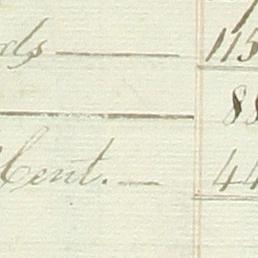 rds — 115
88
Cent. — 44